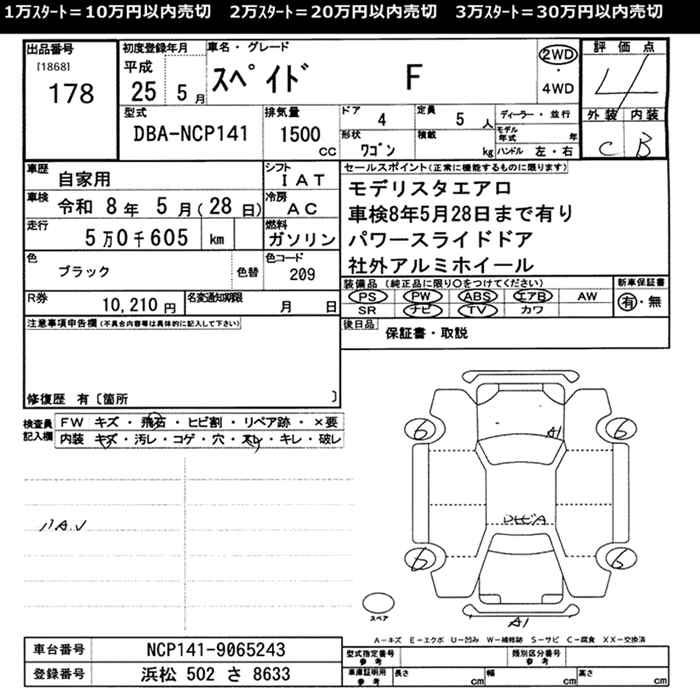 1万スタート＝10万円以内売切　2万スタート＝20万円以内売切　3万スタート＝30万円以内売切
出品番号
[1868]
178
初度登録年月
平成
25 5 月
車名・グレード
スペイド F
2WD
・
4WD
評価点
4
外装 内装
C B
型式
DBA-NCP141
排気量
1500
CC
ドア
4
定員
5 人
ディーラー・並行
モデル年式 年
形状
ワゴン
積載
kg
ハンドル 左・右
車歴
自家用
シフト
IAT
車検
令和 8年 5月(28日)
冷房
AC
走行
5万0千605 km
燃料
ガソリン
色
ブラック
色替
色コード
209
R券
10,210 円
名変通知期限
月 日
セールスポイント(正常に機能するものに限ります)
モデリスタエアロ
車検8年5月28日まで有り
パワースライドドア
社外アルミホイール
装備品 (純正品に限り○をつけてください)
PS PW ABS エアB AW
SR ナビ TV カワ
新車保証書
有・無
後日品
保証書・取説
注意事項申告欄(不具合内容等は具体的に記入して下さい)
修復歴 有〔箇所 〕
検査員
記入欄
FW キズ・飛石・ヒビ割・リペア跡・×要
内装 キズ・汚レ・コゲ・穴・スレ・キレ・破レ
6 6
A1
6 6
A1
スペア
A−キズ E−エクボ U−凹み W−補修跡 S−サビ C−腐食 XX−交換済
車台番号
NCP141-9065243
登録番号
浜松 502 さ 8633
型式指定番号
参考
類別区分番号
参考
車庫証明用
参考
長さ cm
幅 cm
高さ cm